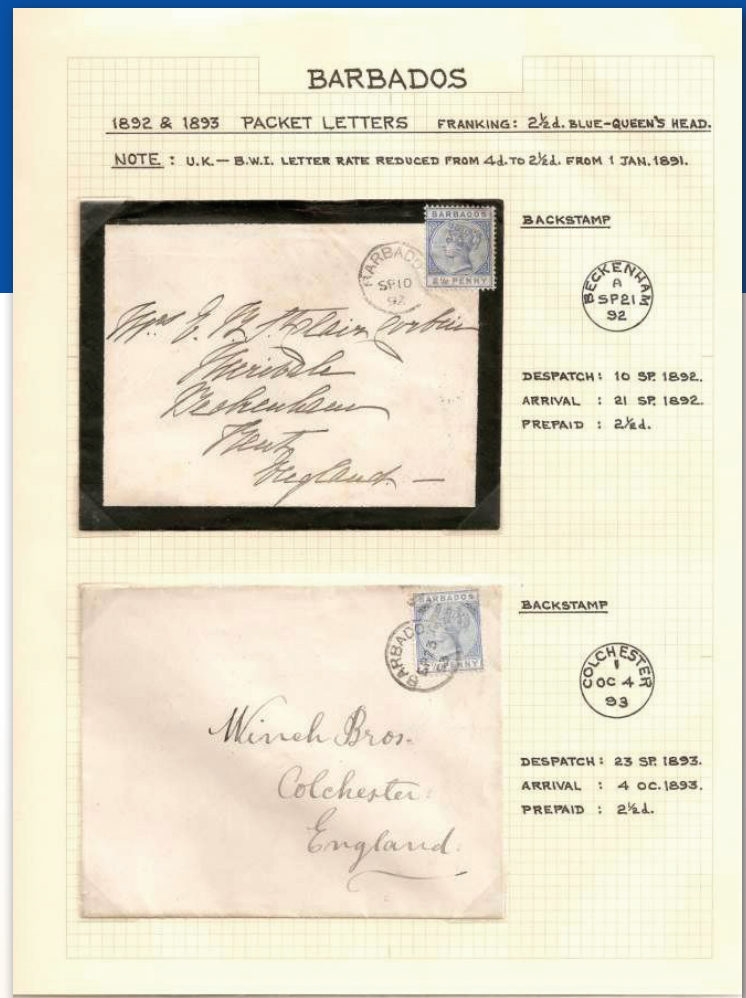 BARBADOS
1892 & 1893 PACKET LETTERS FRANKING: 2½d. BLUE-QUEEN'S HEAD.
NOTE : U.K. — B.W.I. LETTER RATE REDUCED FROM 4d. TO 2½d. FROM 1 JAN. 1891.
BARBADOS
2½ PENNY
BARBADO
SP 10
92
Mrs E.
Beckenham
Kent
England. —
BACKSTAMP
BECKENHAM
A
SP 21
92
DESPATCH : 10 SP. 1892.
ARRIVAL : 21 SP. 1892.
PREPAID : 2½d.
BARBADOS
PENNY
BARBADO
Winch Bros.
Colchester.
England.
BACKSTAMP
COLCHESTER
1
OC 4
93
DESPATCH : 23 SP. 1893.
ARRIVAL : 4 OC. 1893.
PREPAID : 2½d.